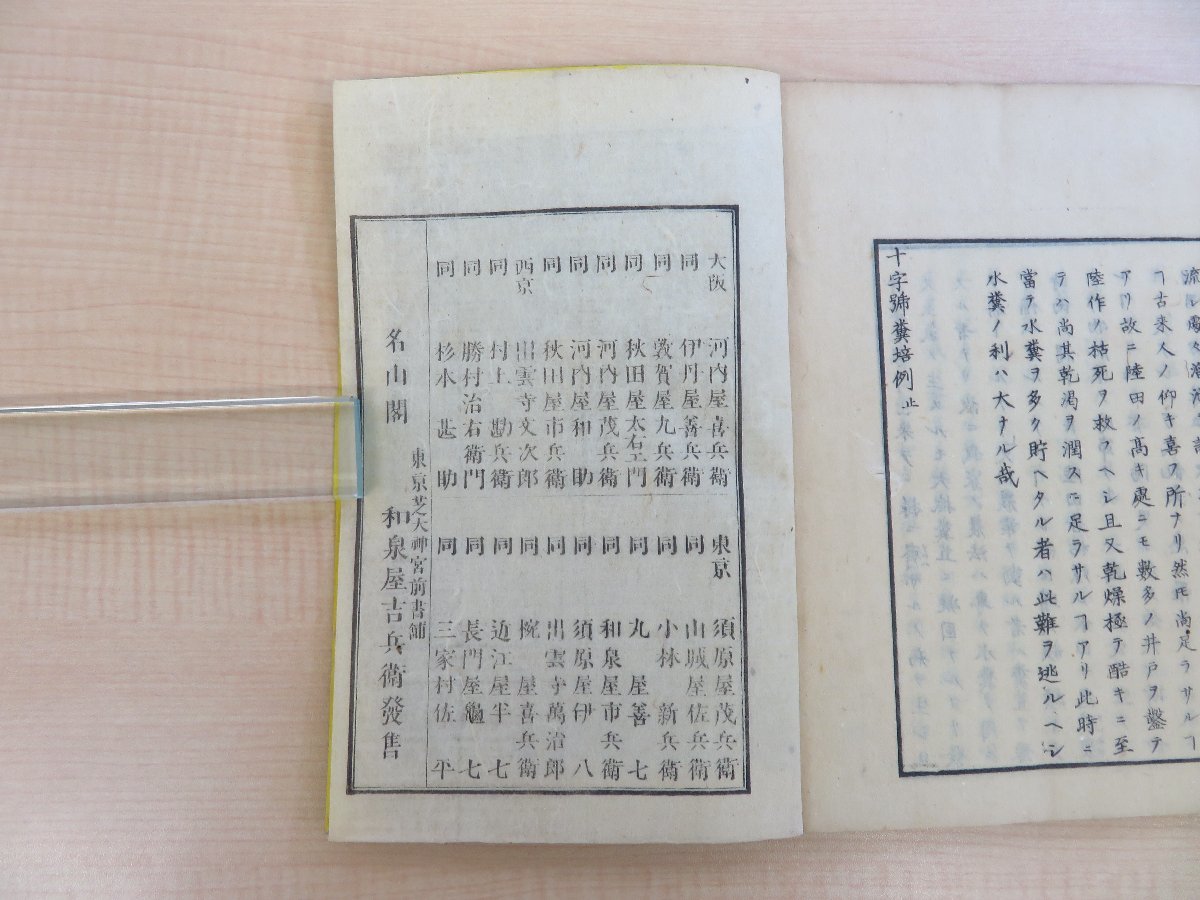 フ古来人ノ仰キ喜フ所ナリ然𪜈尚足ラサルヿ
アリ故ニ陸田ノ髙キ處ニモ數多ノ井戸ヲ鑿テ
陸作ノ枯死ヲ救フヘシ且又乾燥極テ酷キニ至
テハ尚其乾渇ヲ潤スニ足ラサルヿアリ此時ニ
當テ水糞ヲ多ク貯ヘタル者ハ此難ヲ逃ルヘシ
水糞ノ利ハ大ナル哉
十字號糞培例止
大阪 河内屋喜兵衛
同 伊丹屋善兵衛
同 敦賀屋九兵衛
同 秋田屋太右エ門
同 河内屋茂兵衛
同 河内屋和助
同 秋田屋市兵衛
西京 出雲寺文次郎
同 村上勘兵衛
同 勝村治右衛門
同 杉本甚助
東京 須原屋茂兵衛
同 山城屋佐兵衛
同 小林新兵衛
同 丸屋善七
同 和泉屋市兵衛
同 須原屋伊八
同 出雲寺萬治郎
同 椀屋喜兵衛
同 近江屋半七
同 長門屋龜七
同 三家村佐平
東京芝大神宮前書鋪
名山閣 和泉屋吉兵衛發售